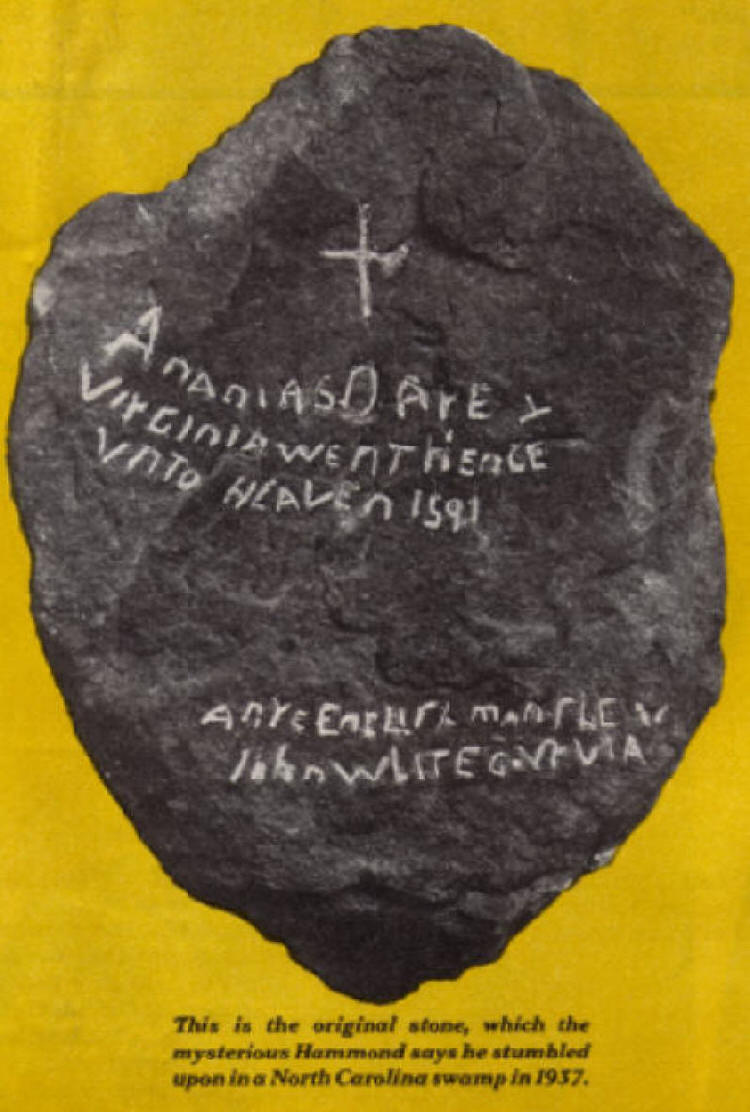 AnAniAS DArE &
VirGiniA WEnT HEnCE
VnTo HEAVEn 1591
AnyE EnGLiSh mAn ShEW
John WhiTE Govr ViA
This is the original stone, which the
mysterious Hammond says he stumbled
upon in a North Carolina swamp in 1937.